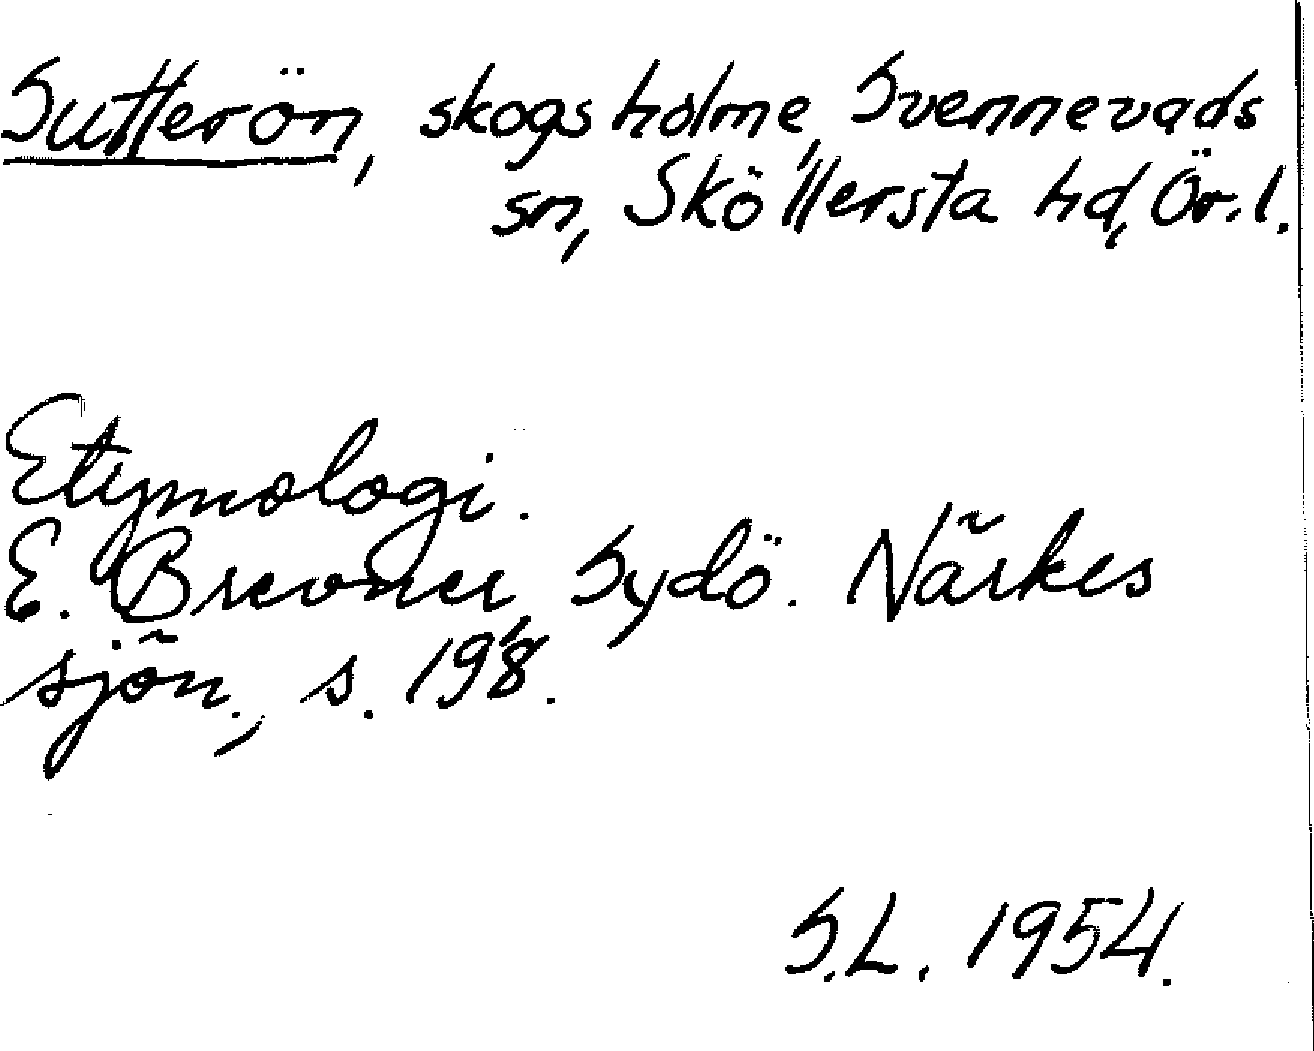 Sutterön, skogsholme, Svennevads
sn, Sköllersta hd, Ör.l.
Etymologi.
E. Brevner, Sydö. Närkes
sjön., s. 198.
S.L. 1954.